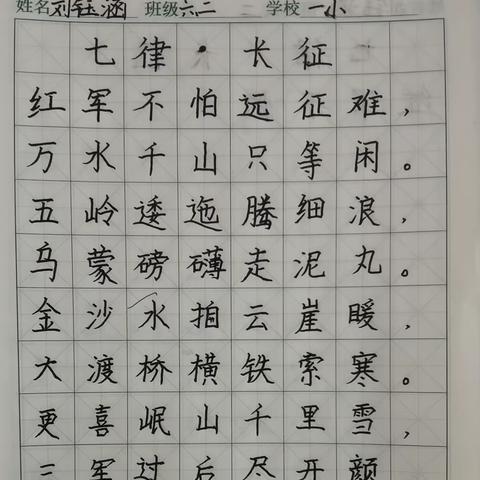 姓名 刘钰涵 班级 六二 学校 一小
七律·长征
红军不怕远征难，
万水千山只等闲。
五岭逶迤腾细浪，
乌蒙磅礴走泥丸。
金沙水拍云崖暖，
大渡桥横铁索寒。
更喜岷山千里雪，
三军过后尽开颜